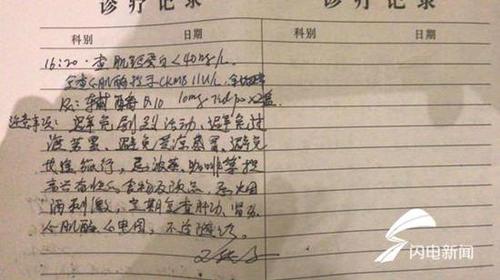 诊疗记录
诊疗记录
科别 日期
科别 日期
16:20 查肌钙蛋白<40ng/L
肌酶 CKMB 11U/L
Rx: 辅酶Q10 10mg tid po x2盒
注意事项: 避免剧烈活动、避免过
度劳累、避免受凉感冒、避免
长途旅行, 忌浓茶、咖啡等
兴奋性食物及饮品, 忌烟
酒刺激, 定期复查肝功、肾功
心肌酶、心电图, 不适随诊
闪电新闻